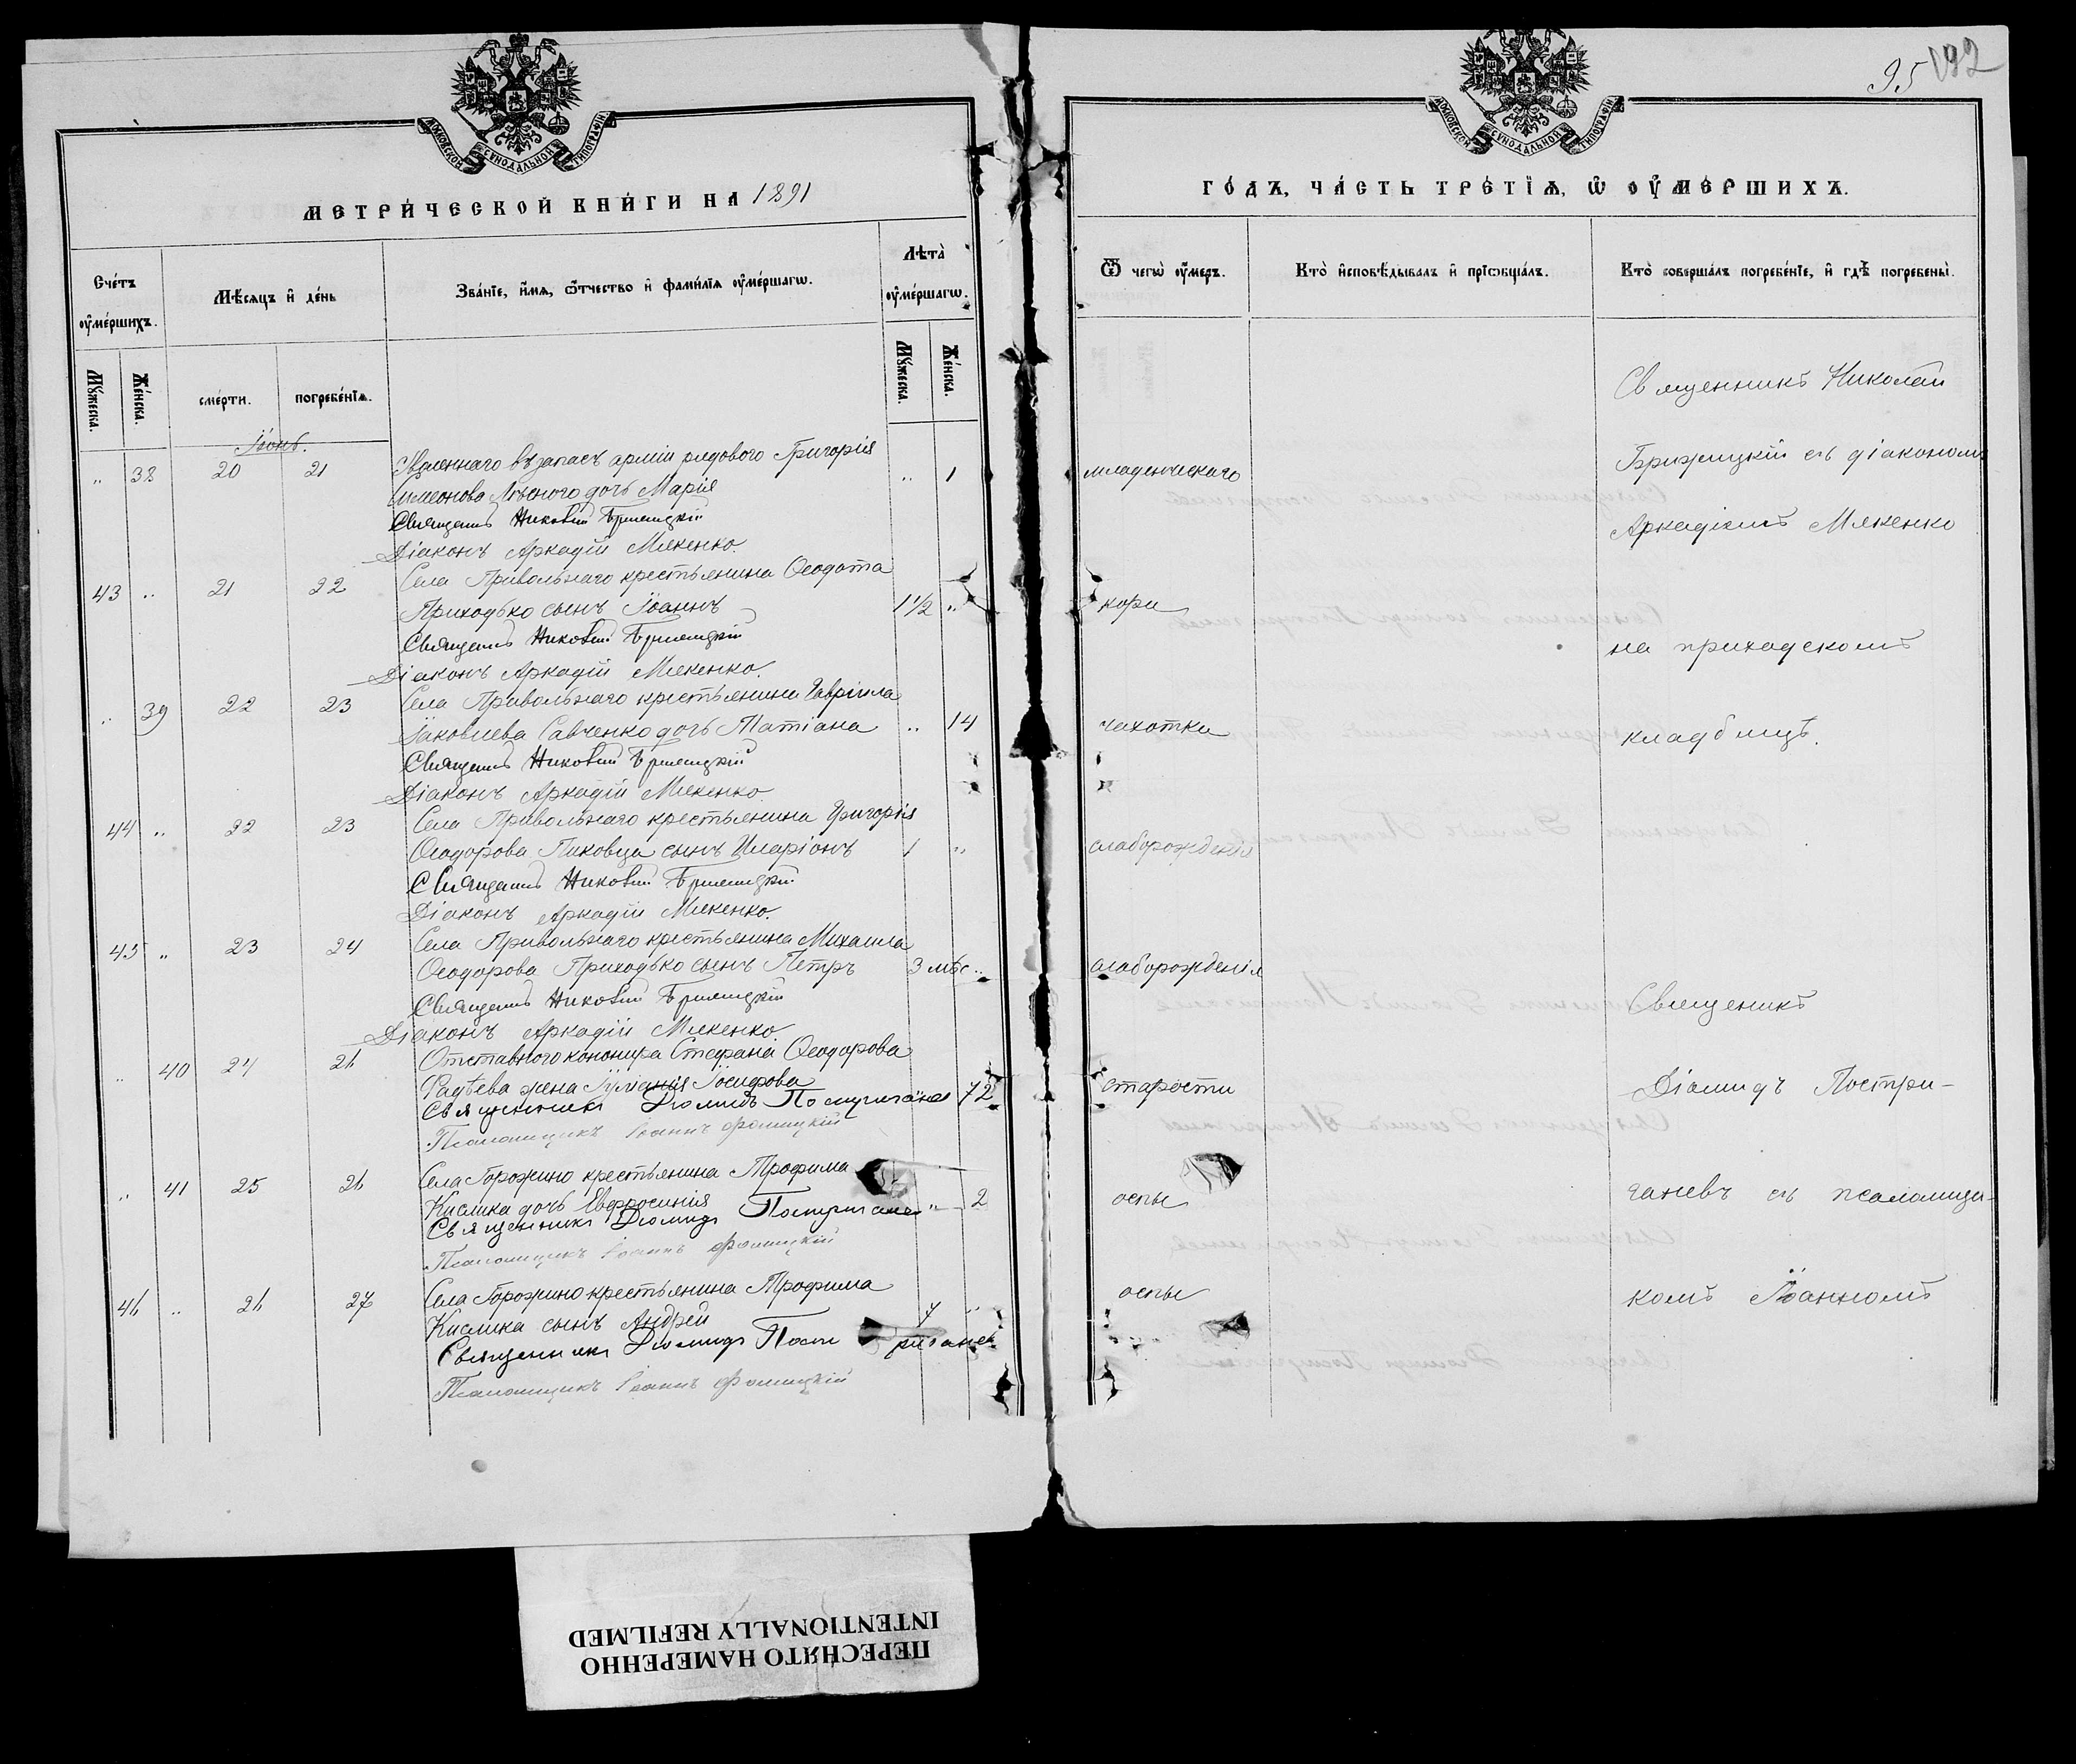 МОСКОВСКОЙ СѴНОДАЛЬНОЙ ТИПОГРАФІИ
МЕТРИ́ЧЕСКОЙ КНИ́ГИ НА 1891
Сче́тъ ᲂу҆ме́ршихъ.
Мѣ́сяцъ и҆ де́нь
Зва́нїе, и҆́мѧ, ѻ҆́тчество и҆ фами́лїѧ ᲂу҆ме́ршагѡ.
Лѣта̀ ᲂу҆ме́ршагѡ.
Мꙋ́жеска. Же́нска. сме́рти. погребе́нїѧ. Мꙋ́жеска. Же́нска.
Іюнь.
„ 38 20 21 Уволеннаго въ запасъ арміи рядового Григорія
Симеонова Лѣсного дочь Марія „ 1
Священникъ Николай Брижицкій
Діаконъ Аркадій Мякенко.
43 „ 21 22 Села Привольнаго крестьянина Ѳеодота
Приходько сынъ Іоаннъ 1 1/2 „
Священникъ Николай Брижицкій
Діаконъ Аркадій Мякенко.
„ 39 22 23 Села Привольнаго крестьянина Гавріила
Іаковлева Савченко дочь Татіана „ 14
Священникъ Николай Брижицкій
Діаконъ Аркадій Мякенко
44 „ 22 23 Села Привольнаго крестьянина Григорія
Ѳеодорова Пиковца сынъ Иларіонъ 1 „
Священникъ Николай Брижицкій
Діаконъ Аркадій Мякенко.
45 „ 23 24 Села Привольнаго крестьянина Михаила
Ѳеодорова Приходько сынъ Петръ 3 мѣс „
Священникъ Николай Брижицкій
Діаконъ Аркадій Мякенко
„ 40 24 26 Отставного канонира Стефана Ѳеодорова
Фадѣева жена Іуліанія Іосифова 72
Священникъ Діомидъ Постригачевъ
Псаломщикъ Іоаннъ Фомицкій
„ 41 25 26 Села Горожино крестьянина Трофима
Кислика дочь Евфросинія „ 2
Священникъ Діомидъ Постригачевъ
Псаломщикъ Іоаннъ Фомицкій
46 „ 26 27 Села Горожино крестьянина Трофима
Кислика сынъ Андрей 7 „
Священникъ Діомидъ Постригачевъ
Псаломщикъ Іоаннъ Фомицкій
95 192
МОСКОВСКОЙ СѴНОДАЛЬНОЙ ТИПОГРАФІИ
ГО́ДЪ, ЧА́СТЬ ТРЕ́ТЇѦ, Ѡ҆ ОУ҆МЕ́РШИХЪ.
Ѿ чегѡ̀ ᲂу҆́меръ.
Кто̀ и҆сповѣ́дывалъ и҆ прїѡбща́лъ.
Кто̀ соверша́лъ погребе́нїе, и҆ гдѣ̀ погребены̀.
младенческаго
кори
чахотки
слаборожденія
слаборожденія
старости
оспы
оспы
Священникъ Николай
Брижицкій съ діакономъ
Аркадіемъ Мякенко
на приходскомъ
кладбищѣ.
Священикъ
Діамидъ Постри-
гачевъ съ псаломщи-
комъ Іоанномъ
ПЕРЕСНЯТО НАМЕРЕННО
INTENTIONALLY REFILMED